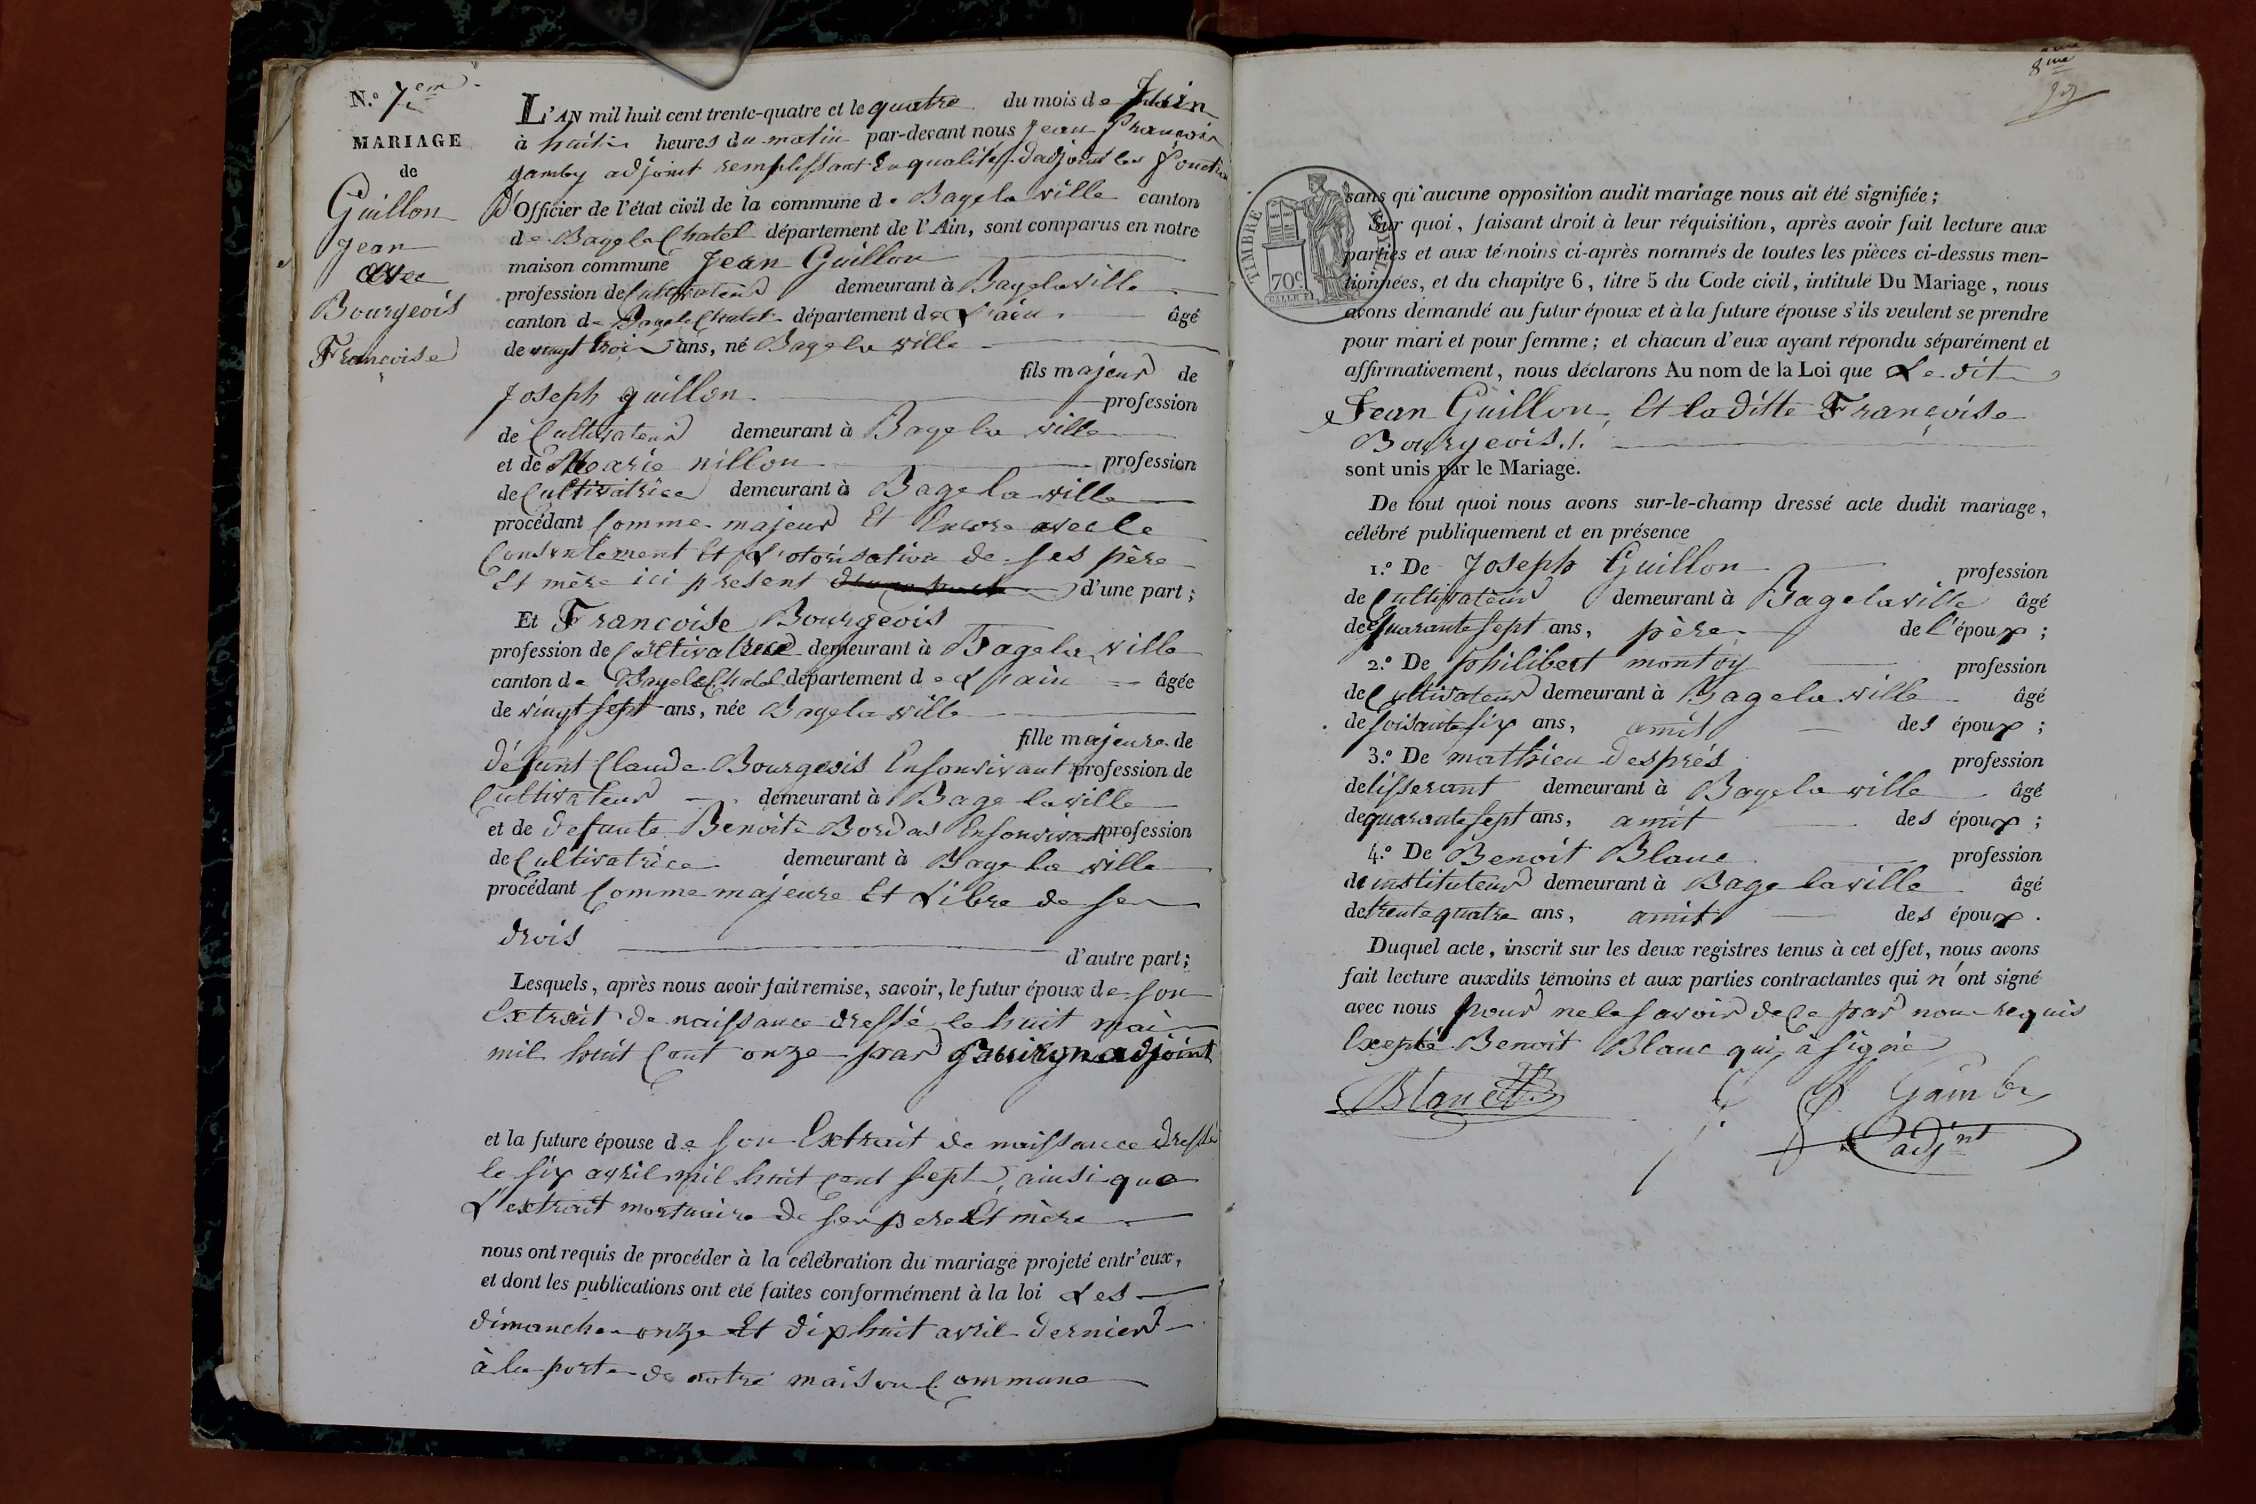 N.° 7em
MARIAGE
de
Guillon
Jean
avec
Bourgeois
Françoise
L'AN mil huit cent trente-quatre et le quatre du mois de Juin
à huit heures du matin par-devant nous Jean François
gamby adjoint remplissant en qualité d'adjoint les fonction
d'Officier de l'état civil de la commune de Bagelaville canton
de Bagé le Chatel département de l'Ain, sont comparus en notre
maison commune Jean Guillon
profession de Cultivateur demeurant à Bagelaville
canton de Bagé le Chatel département de L'ain âgé
de vingt trois ans, né Bage la ville
fils majeur de
Joseph guillon profession
de Cultivateur demeurant à Bage la ville
et de Marie nillon profession
de Cultivatrice demeurant à Bage la ville
procédant Comme majeur Et Encore avec le
Consentement Et L'otorisation de ses père
Et mère ici present d'une part ;
Et Francoise Bourgeois
profession de Cultivatrice demeurant à Bage la ville
canton de Bagé le Chatel département de L'ain âgée
de vingt sept ans, née Bage la ville
fille majeure de
défunt Claude Bourgeois Ensonvivant profession de
Cultivateur demeurant à Bage la ville
et de defunte Benoite Bordas Ensonvivant profession
de Cultivatrice demeurant à Bage la ville
procédant Comme majeure Et Libre de ses
drois
d'autre part ;
Lesquels, après nous avoir fait remise, savoir, le futur époux de son
Extrait de naissance dressé le huit mai
mil huit Cent onze par adjoint
et la future épouse de son Extrait de naissance dressé
le six avril mil huit Cent sept, ainsi que
L'extrait mortuaire de ses pere Et mère
nous ont requis de procéder à la célébration du mariage projeté entr'eux,
et dont les publications ont été faites conformément à la loi Les
dimanche onze Et dix huit avril dernier
à la porte de notre maison Commune
8me
TIMBRE ROYAL
70c
sans qu'aucune opposition audit mariage nous ait été signifiée ;
Sur quoi, faisant droit à leur réquisition, après avoir fait lecture aux
parties et aux témoins ci-après nommés de toutes les pièces ci-dessus men-
tionnées, et du chapitre 6, titre 5 du Code civil, intitulé Du Mariage, nous
avons demandé au futur époux et à la future épouse s'ils veulent se prendre
pour mari et pour femme ; et chacun d'eux ayant répondu séparément et
affirmativement, nous déclarons Au nom de la Loi que Le dit
Jean Guillon, Et la ditte Françoise
Bourgeois./.
sont unis par le Mariage.
De tout quoi nous avons sur-le-champ dressé acte dudit mariage,
célébré publiquement et en présence
1.° De Joseph Guillon profession
de Cultivateur demeurant à Bagelaville âgé
de quarante sept ans, père de l'époux ;
2.° De philibert montoy profession
de Cultivateur demeurant à Bage la ville âgé
de soisante six ans, amit des époux ;
3.° De mathieu després profession
de tisserant demeurant à Bage la ville âgé
de quarante sept ans, amit des époux ;
4.° De Benoit Blanc profession
de instituteur demeurant à Bage la ville âgé
de trente quatre ans, amit des époux.
Duquel acte, inscrit sur les deux registres tenus à cet effet, nous avons
fait lecture auxdits témoins et aux parties contractantes qui n'ont signé
avec nous pour ne le savoir de ce par nous requis
Excepté Benoit Blanc qui à signé
Blanc
Gamby
adjnt